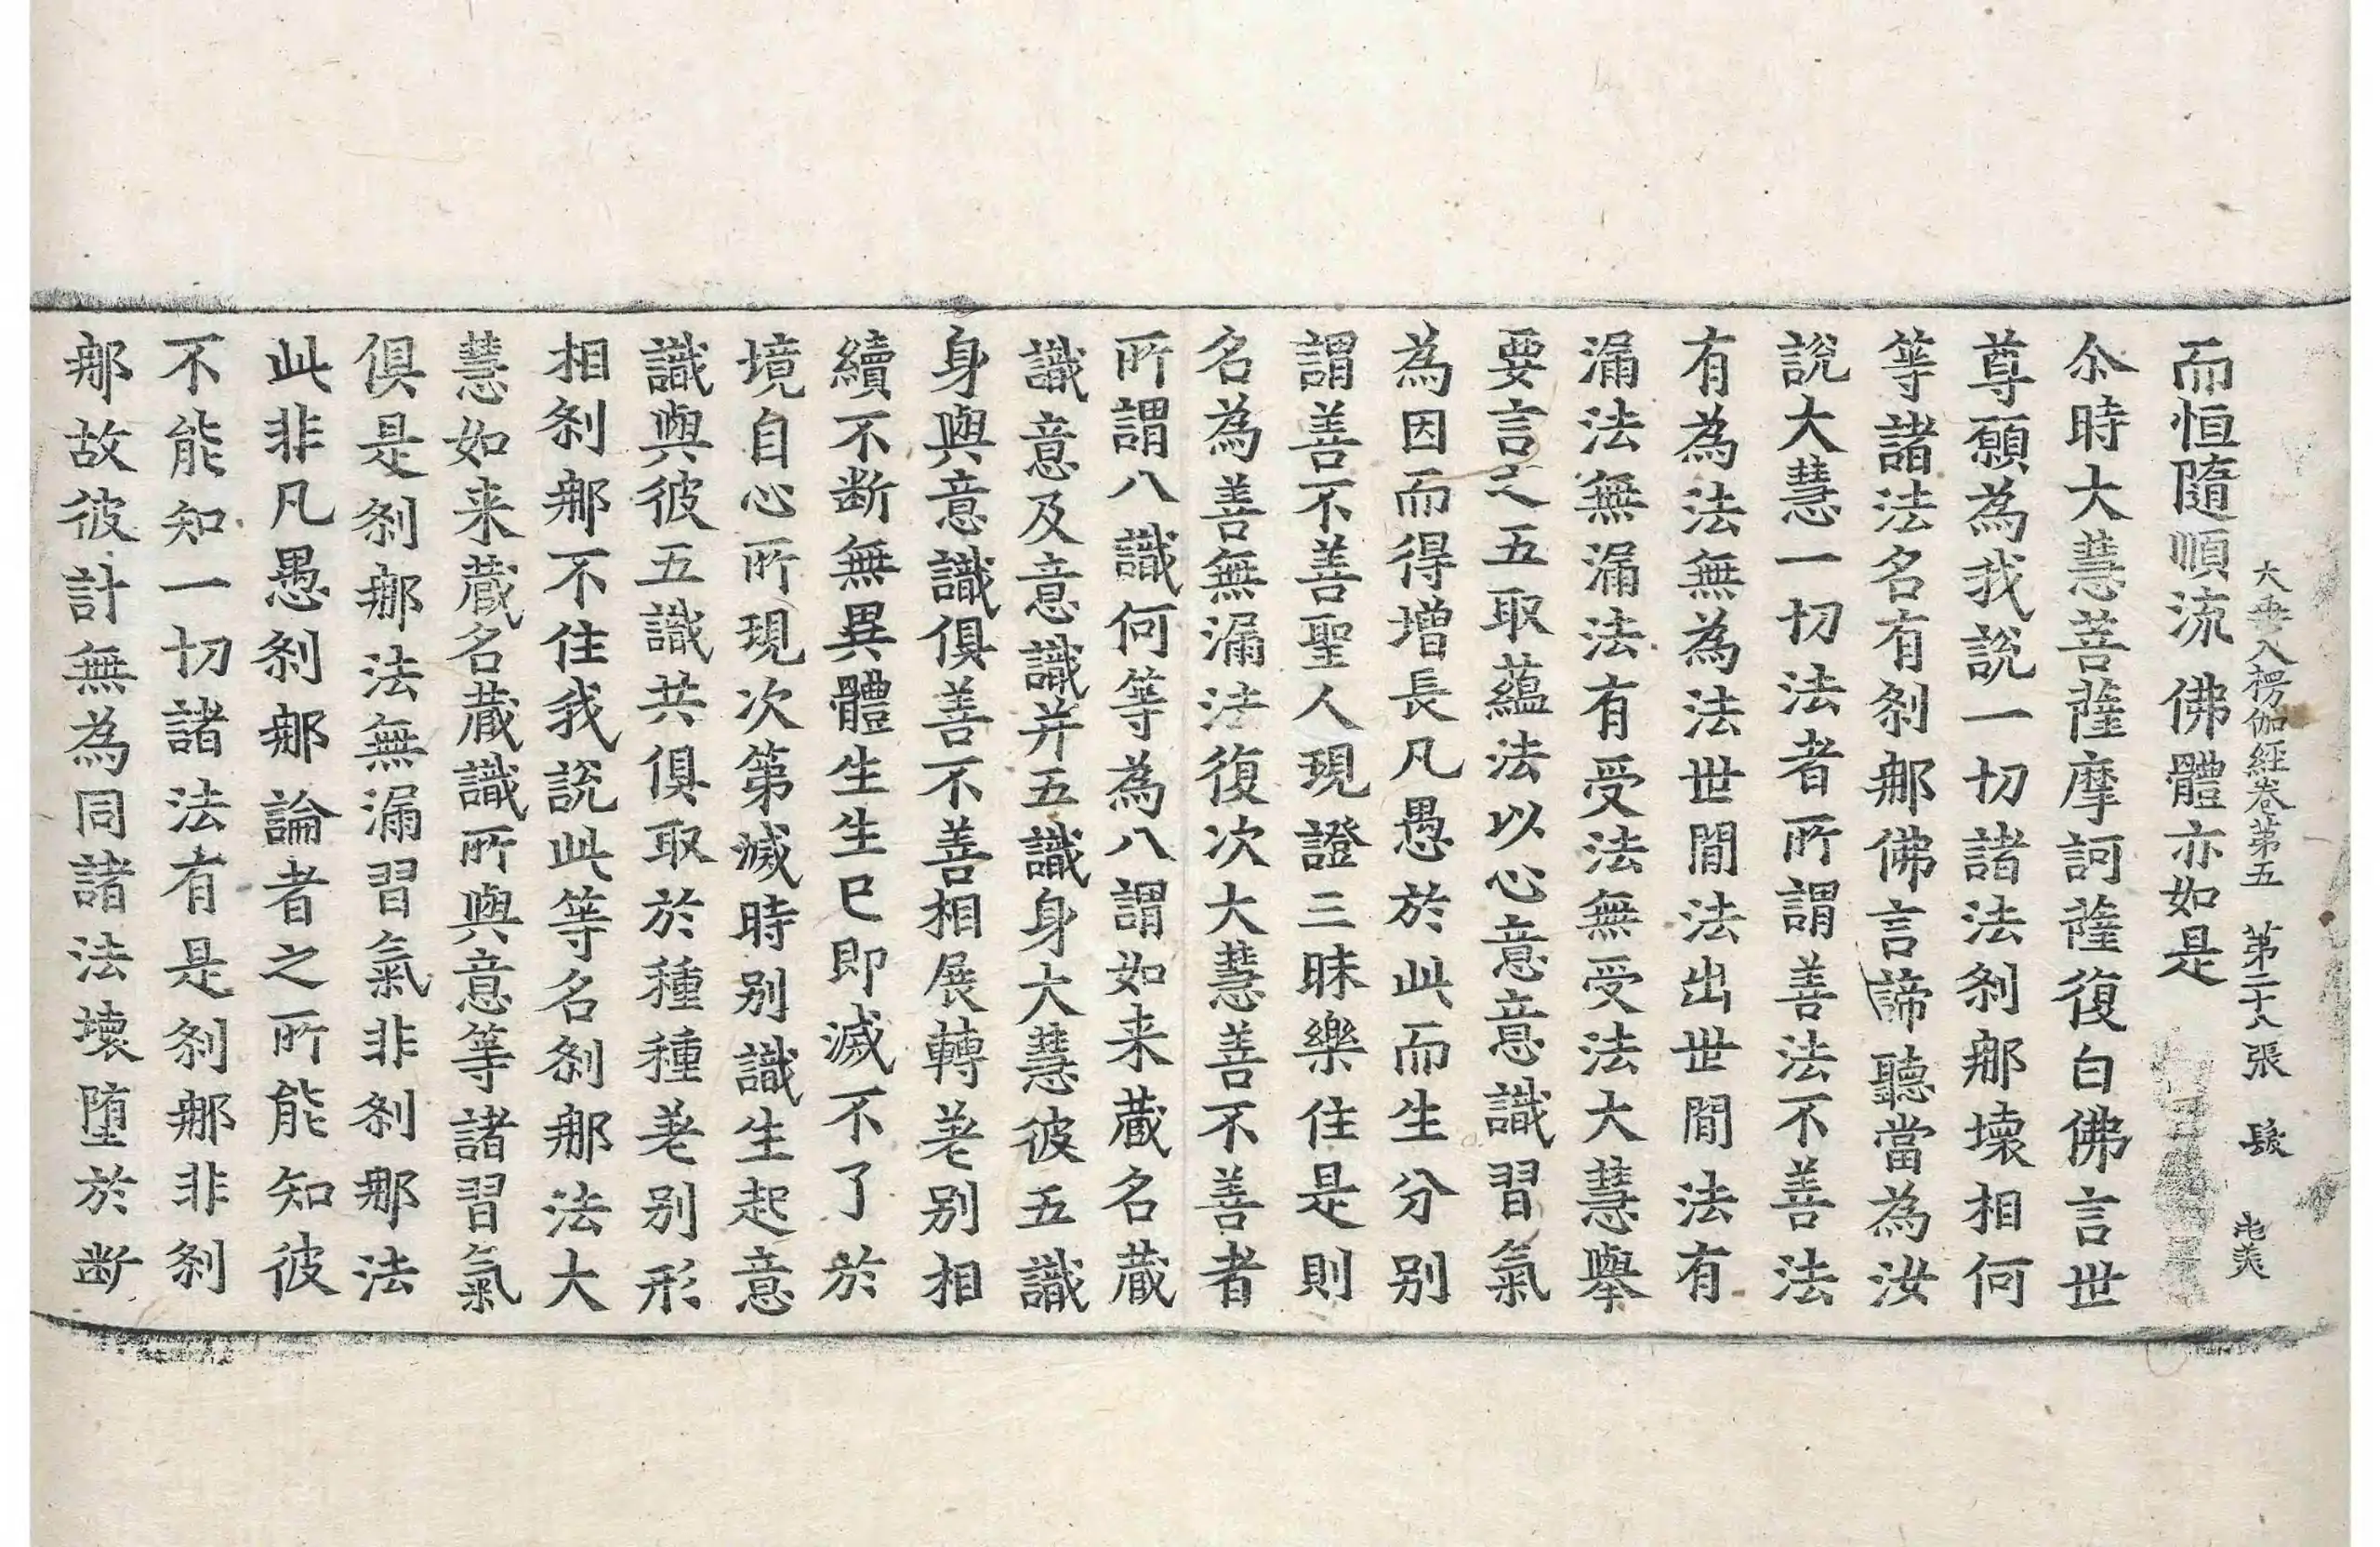 大乗入楞伽経卷第五 第二十八張 髮
而恒隨順流 佛體亦如是
尒時大慧菩薩摩訶薩復白佛言世
尊願為我說一切諸法刹那壞相何
等諸法名有刹那佛言諦聽當為汝
說大慧一切法者所謂善法不善法
有為法無為法世間法出世間法有
漏法無漏法有受法無受法大慧舉
要言之五取蘊法以心意意識習氣
為因而得增長凡愚於此而生分别
謂善不善聖人現證三昧樂住是則
名為善無漏法復次大慧善不善者
所謂八識何等為八謂如来蔵名蔵
識意及意識并五識身大慧彼五識
身與意識俱善不善相展轉差别相
續不断無異體生生已即滅不了於
境自心所現次第滅時别識生起意
識與彼五識共俱取於種種差别形
相刹那不住我說此等名刹那法大
慧如来蔵名蔵識所與意等諸習氣
俱是刹那法無漏習氣非刹那法
此非凡愚刹那論者之所能知彼
不能知一切諸法有是刹那非刹
那故彼計無為同諸法壞墮於断